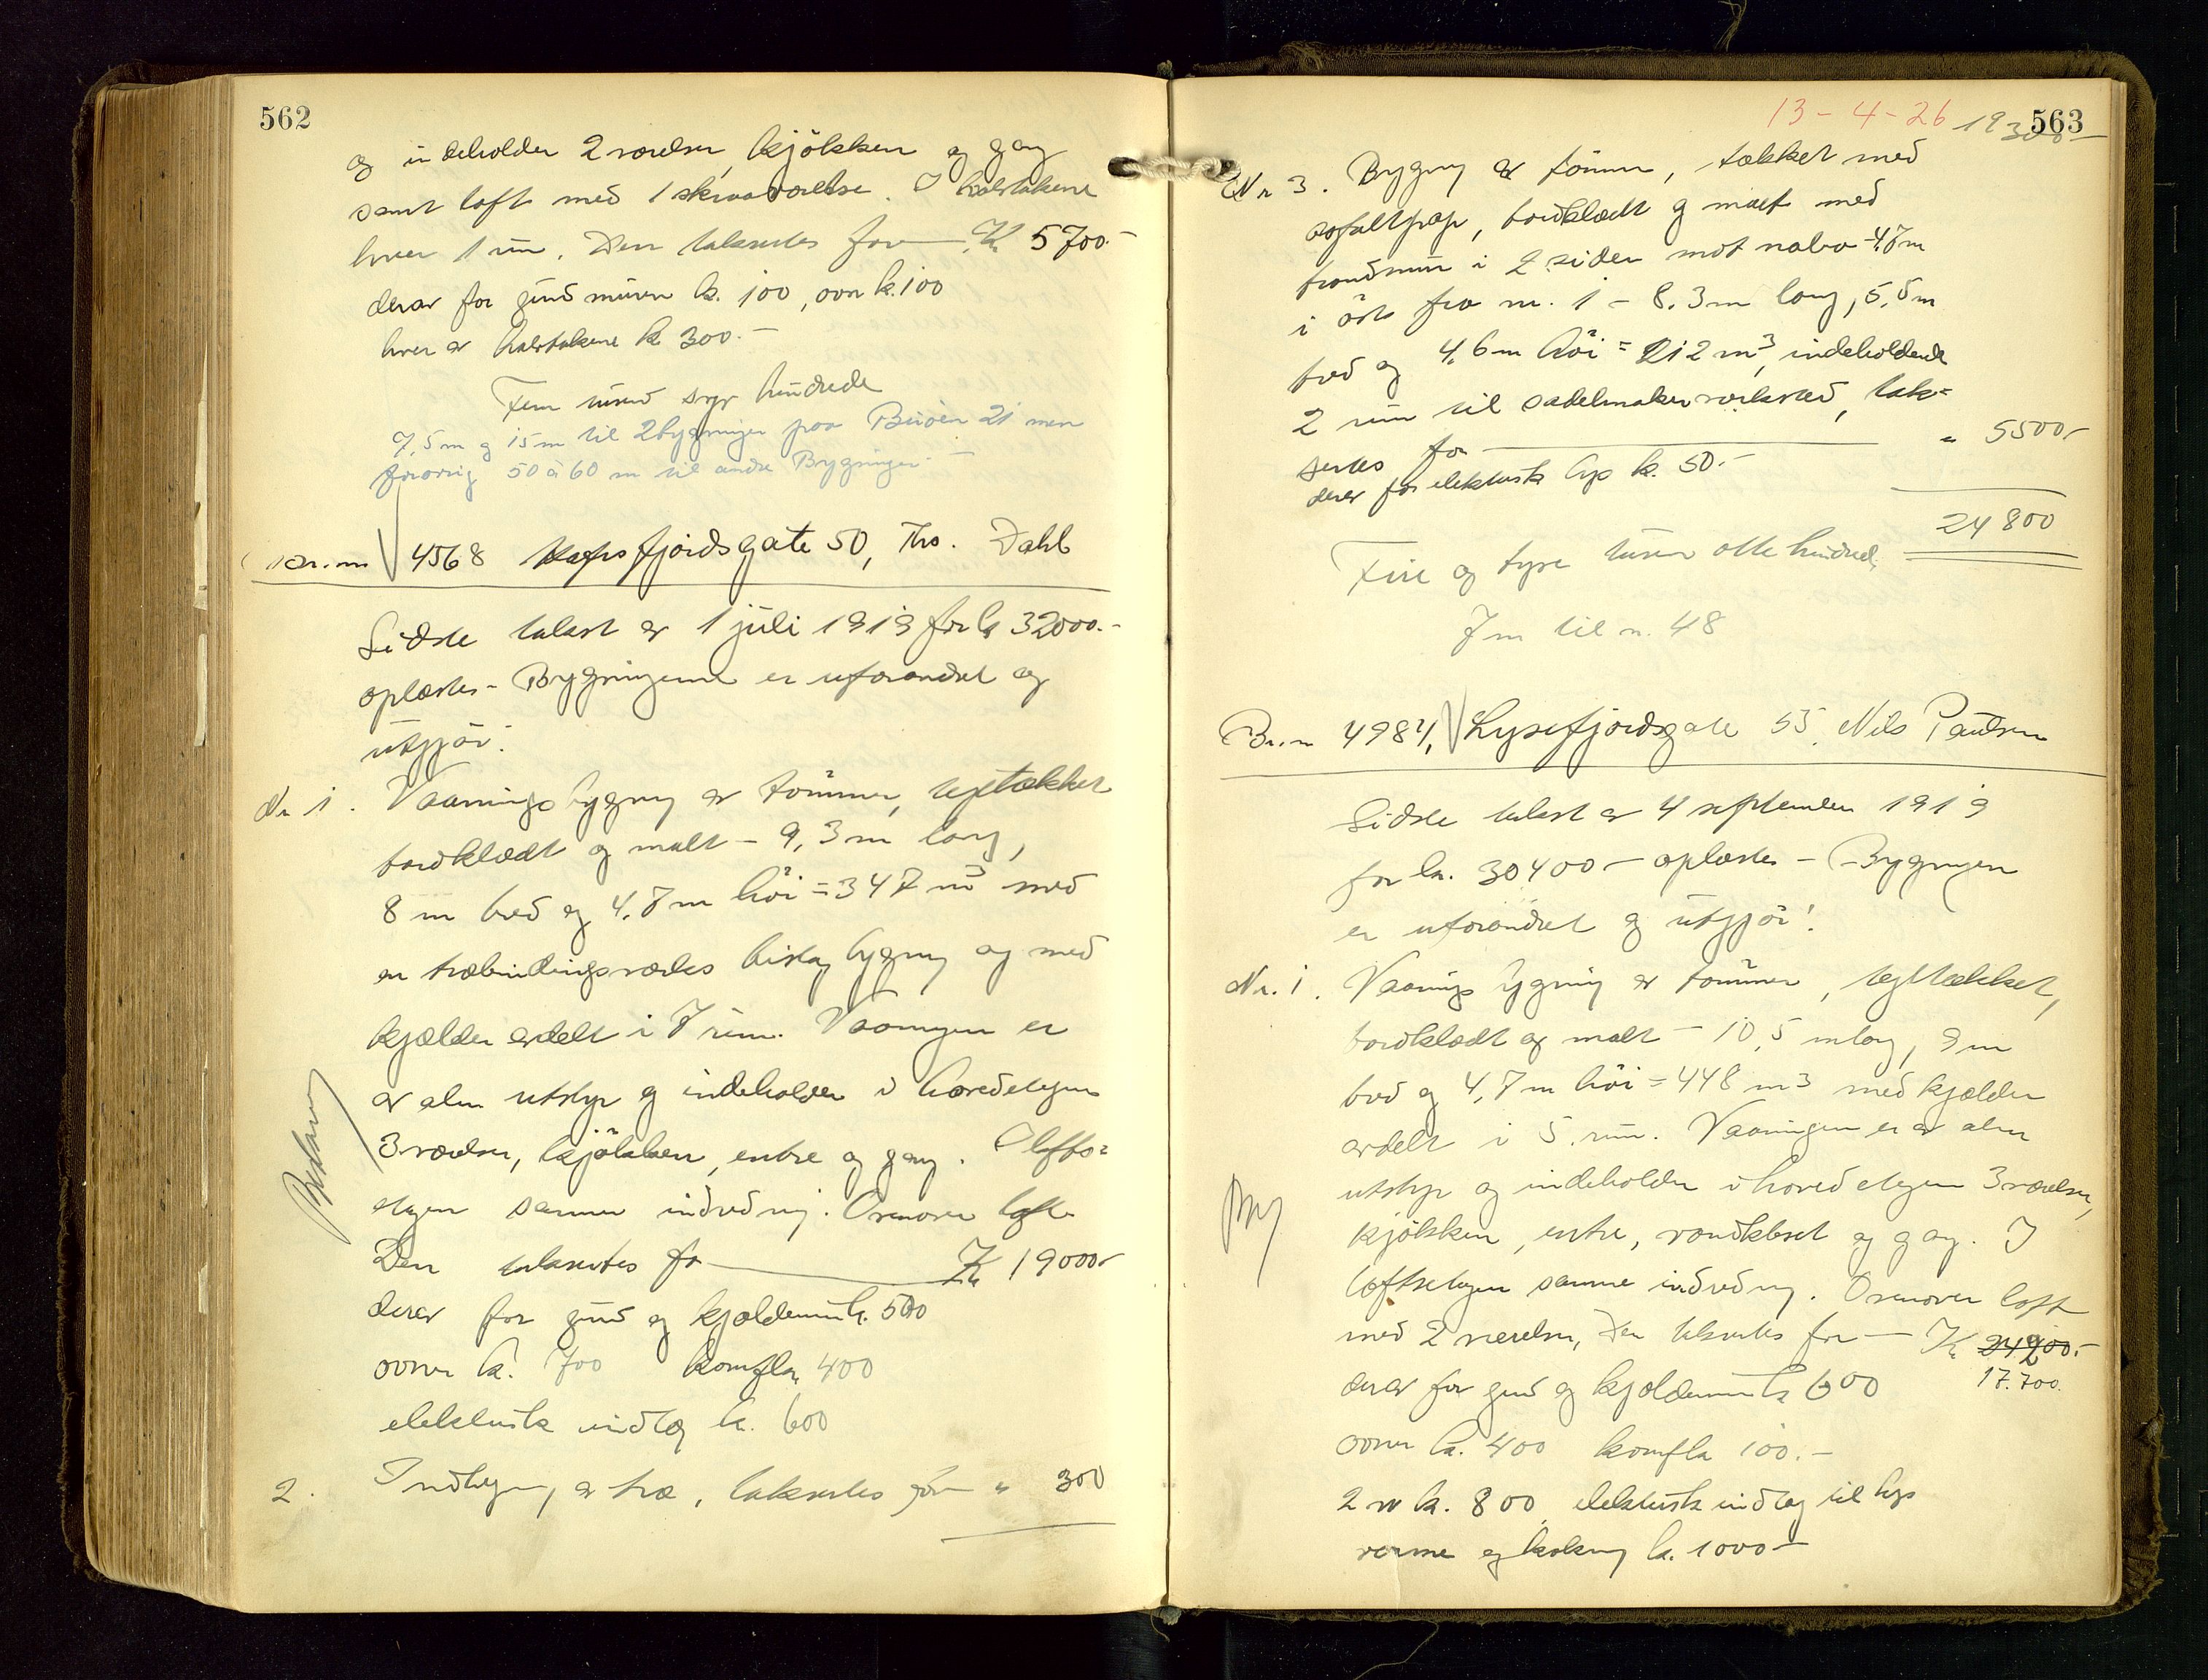 562
og indeholder 2 værelser, kjökken og gang
samt loft med 1 skraaværelse. I halvtakene
hver 1 rum. Den takseres for Kr 5700.-
derav for grundmuren kr. 100, ovn kr. 100
hver av halvtakene kr 300.-
Fem tusind syv hundrede
7,5m og 15m til 2 bygninger paa Buöen 21 men
forövrig 50 à 60 m til andre Bygninger. -
Br. nr. 4568 Hafrsfjordsgate 50, Ths. Dahl
Sidste takst av 1 juli 1919 for kr 32000.-
oplæstes - Bygningerne er uforandret og
utgjör:
Nr 1. Vaaningsbygning av tömmer, teglstækket
bordklædt og malt - 9,3m lang,
8 m bred og 4,7m höi = 347 m3 med
en træbindingsverks bislagbygning og med
kjælder avdelt i 7 rum. Vaaningen er
av alm utstyr og indeholder i hovedetagen
3 værelser, kjökken, entre og gang. I lofts=
etagen samme indredning. Ovenover loft
Den takseres for Kr 19000-
derav for grund og kjældermur kr. 500
ovner kr. 700 komfkr. 400
elektrisk indlæg kr. 600
2. Indhegning av træ, takseres for " 300
563
13-4-26 19300-
Nr 3. Bygning av tömmer, tækket med
asfaltpap, bordklædt og malt med
brandmur i 2 sider mot nabo - 4,7m
i öst fra nr. 1 - 8,3m lang, 5,5m
bred og 4,6m höi = 212 m3, indeholdende
2 rum til sadelmakerverksted, tak=
seres for " 5500-
derav for elektrisk lys kr. 50.-
24800
Fire og tyve tusen otte hundrede
7m til nr. 48
Br. nr 4984, Lysefjordsgate 55. Nils Paulsen
Sidste takst av 4 september 1919
for kr. 30400- oplæstes - Bygningen
er uforandret og utgjör:
Nr. 1. Vaaningsbygning av tömmer, teglstækket,
bordklædt og malt - 10,5 m lang, 9m
bred og 4,7m höi = 448 m3 med kjælder
avdelt i 5. rum. Vaaningen er av alm
utstyr og indeholder i hovedetagen 3 værelser,
kjökken, entre, vandkloset og gang. I
loftsetagen samme indredning. Ovenover loft
med 2 værelser, Den takseres for - Kr 24900.-
17.700.
derav for grund og kjældermur kr 600
ovner kr. 400 komfkr 100.-
2 w kr. 800, elektrisk indlæg til lys
varme og kokning kr. 1000-